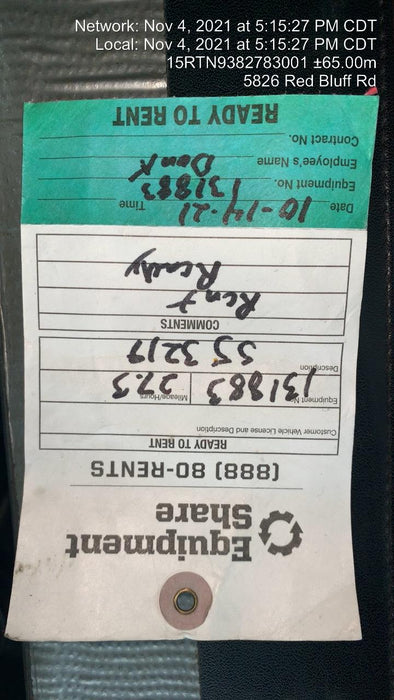 Network: Nov 4, 2021 at 5:15:27 PM CDT
Local: Nov 4, 2021 at 5:15:27 PM CDT
15RTN9382783001 ±65.00m
5826 Red Bluff Rd
Equipment
Share
(888) 80-RENTS
READY TO RENT
Customer Vehicle License and Description
Equipment No. 131883 Mileage/Hours 27.5
Description SJ 3219
COMMENTS
Rent
Ready
Date 10-14-21 Time
Equipment No. 131883
Employee's Name
Contract No.
READY TO RENT